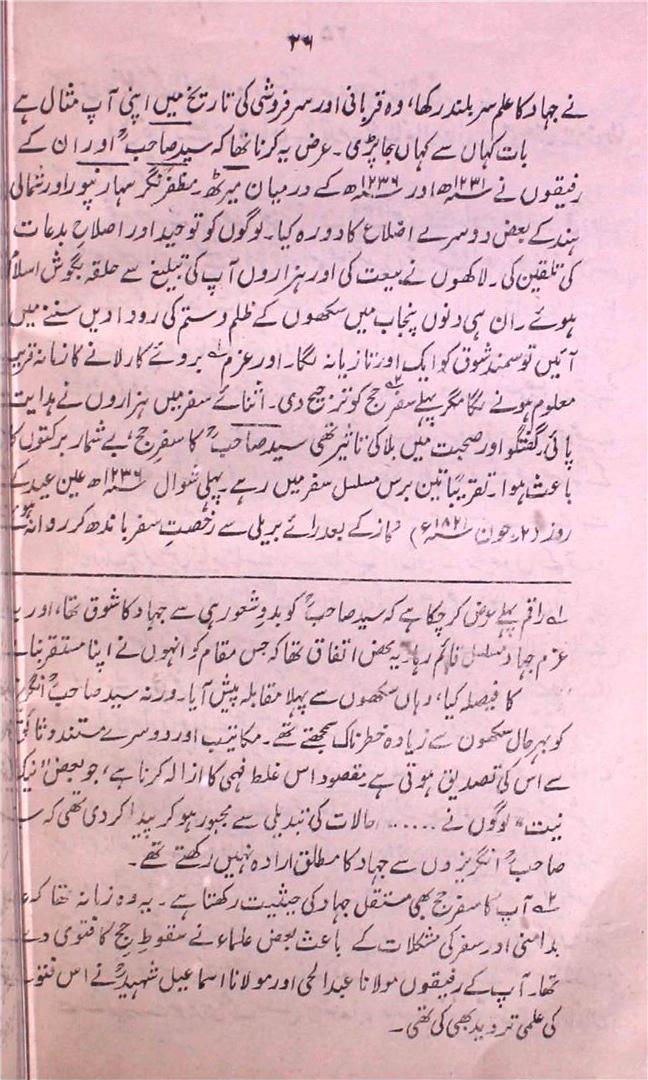 ۲۶
نے جہاد کا علم سر بلند رکھا، وہ قربانی اور سرفروشی کی تاریخ میں اپنی آپ مثال ہے
بات کہاں سے کہاں جا پڑی۔ عرض یہ کرنا تھا کہ سید صاحبؒ اور ان کے
رفیقوں نے ۱۲۳۱ھ اور ۱۲۳۶ھ کے درمیان میرٹھ۔ مظفر نگر سہارنپور اور شمالی
ہند کے بعض دوسرے اضلاع کا دورہ کیا۔ لوگوں کو توحید اور اصلاحِ بدعات
کی تلقین کی۔ لاکھوں نے بیعت کی اور ہزاروں آپ کی تبلیغ سے حلقہ بگوش اسلام
ہوئے۔ ان ہی دنوں پنجاب میں سکھوں کے ظلم و ستم کی رودادیں سننے میں
آئیں تو سمند شوق کو ایک اور تازیانہ لگا۔ اور عزم لہ بروئے کار لانے کا زمانہ قریب
معلوم ہونے لگا مگر پہلے سفر حج کو ترجیح دی۔ اثنائے سفر میں ہزاروں نے ہدایت
پائی۔ گفتگو اور صحبت میں بلا کی تاثیر تھی سید صاحبؒ کا سفر حج، بے شمار برکتوں کا
باعث ہوا۔ تقریباً تین برس مسلسل سفر میں رہے۔ پہلی شوال ۱۲۳۶ھ عین عید کے
روز (۲ جون ۱۸۲۱ء) نماز کے بعد رائے بریلی سے رخصتِ سفر باندھ کر روانہ ہوئے
لہ راقم پہلے عرض کر چکا ہے کہ سید صاحبؒ کو بدو شعور ہی سے جہاد کا شوق تھا، اور
عزم جہاد مسلسل قائم رہا۔ یہ محض اتفاق تھا کہ جس مقام کو انہوں نے اپنا مستقر بنانے
کا فیصلہ کیا، وہاں سکھوں سے پہلا مقابلہ پیش آیا۔ ورنہ سید صاحبؒ انگریز
کو بہر حال سکھوں سے زیادہ خطرناک سمجھتے تھے۔ مکاتیب اور دوسرے مستند وثائق
سے اس کی تصدیق ہوتی ہے۔ مقصود اس غلط فہمی کا ازالہ کرنا ہے، جو بعض "نیک
نیت" لوگوں نے ...... حالات کی تبدیلی سے مجبور ہو کر پیدا کر دی تھی کہ
صاحبؒ انگریزوں سے جہاد کا مطلق ارادہ نہیں رکھتے تھے۔
۲ہ آپ کا سفر حج بھی مستقل جہاد کی حیثیت رکھتا ہے۔ یہ وہ زمانہ تھا کہ
بدامنی اور سفر کی مشکلات کے باعث بعض علماء نے سقوطِ حج کا فتویٰ دے
تھا۔ آپ کے رفیقوں مولانا عبدالحی اور مولانا اسماعیل شہیدؒ نے اس فتویٰ
کی علمی تردید بھی کی تھی۔